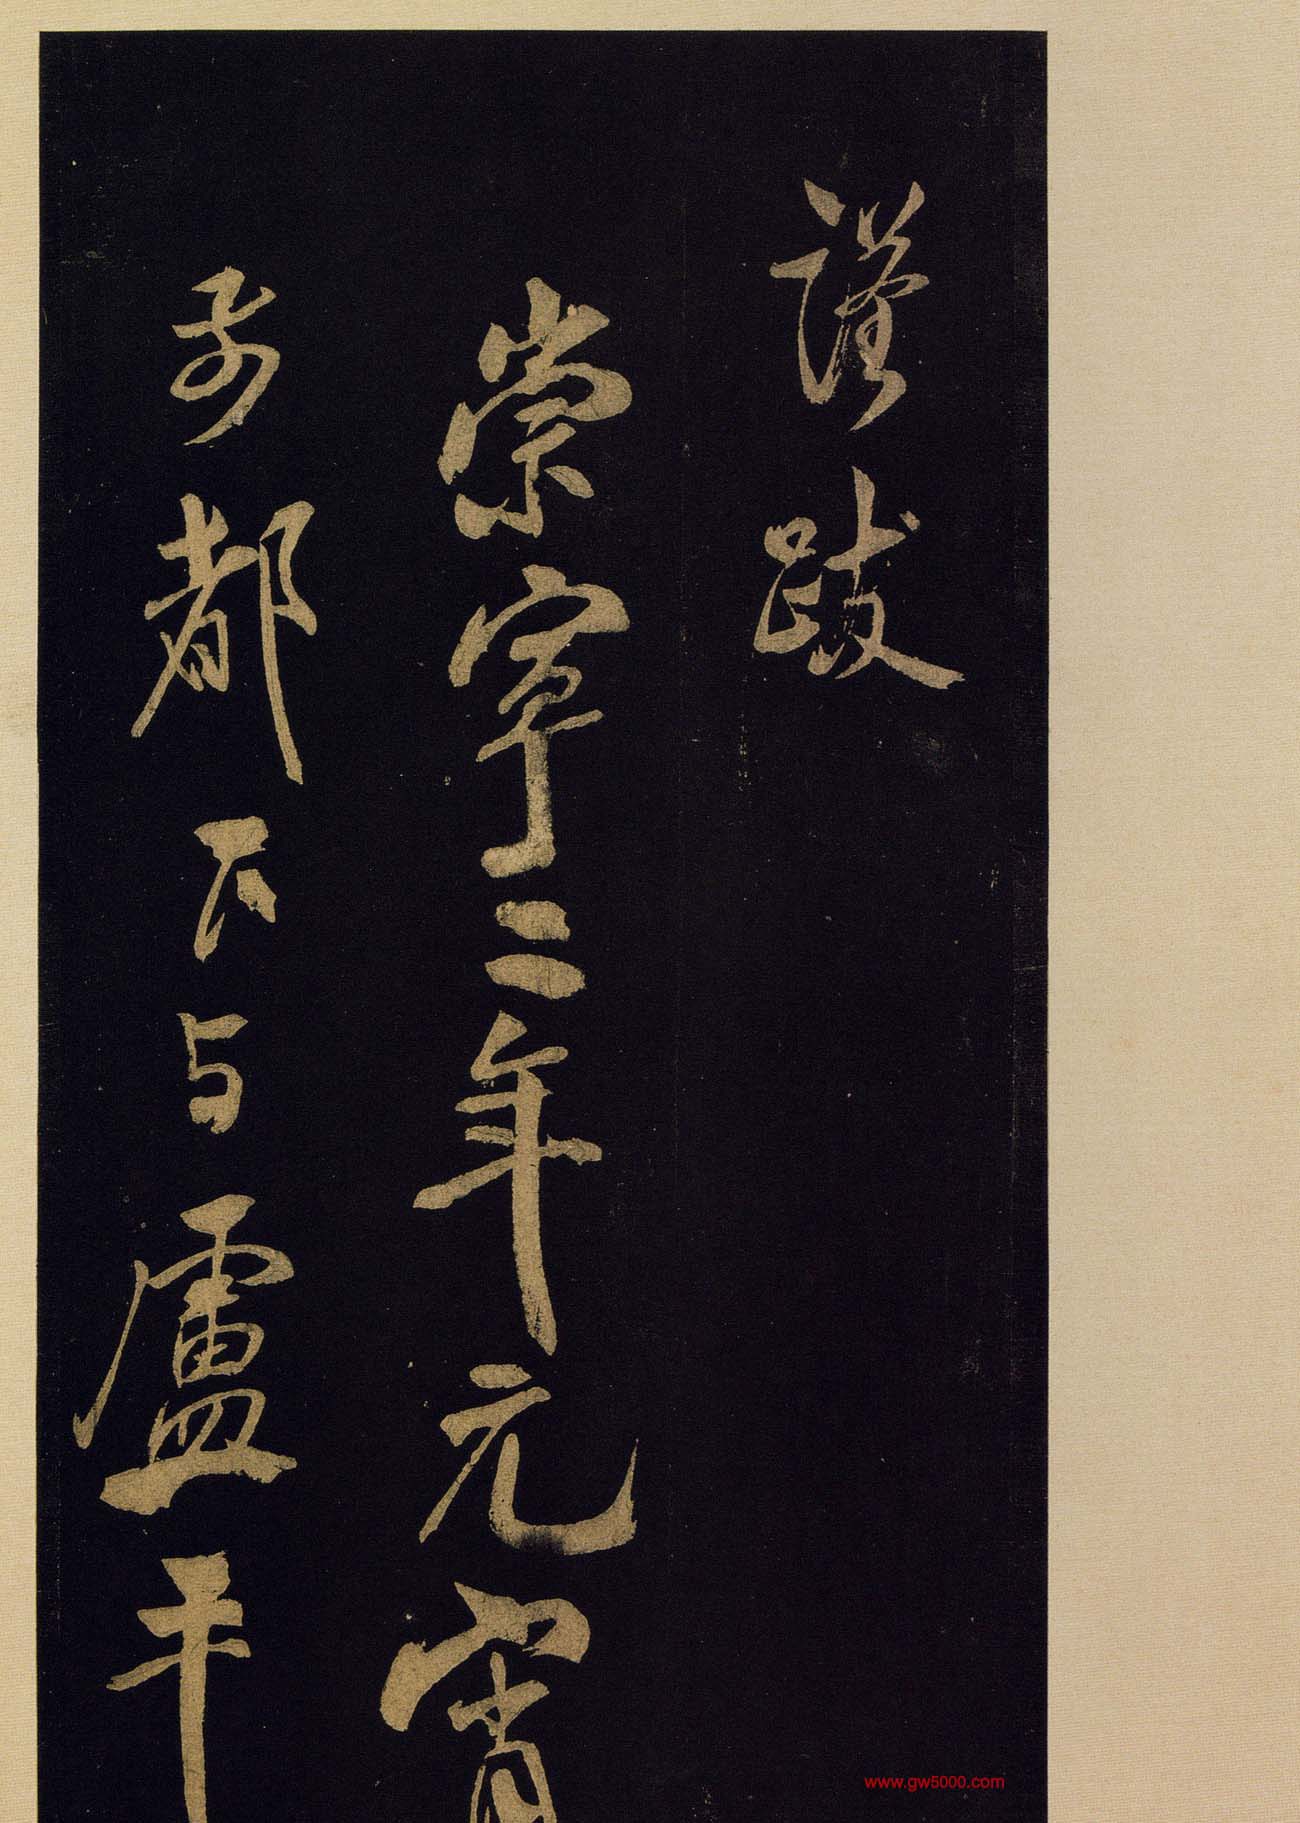 謹跋
崇寧二年元宵
都下与盧平
www.gw5000.com